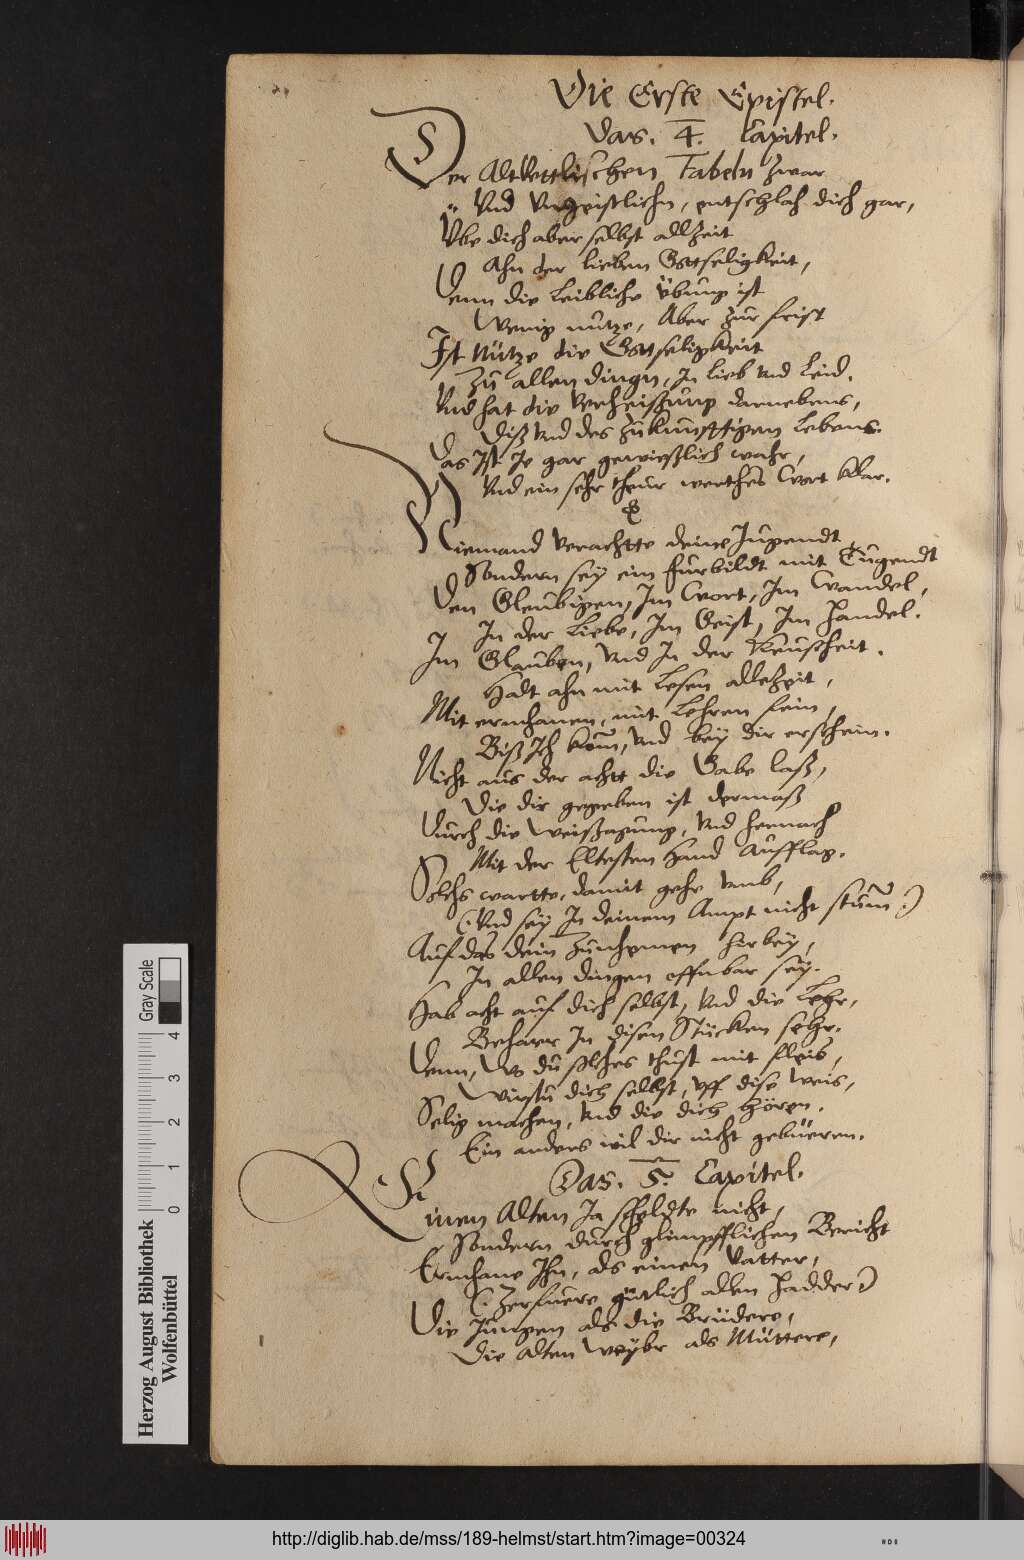 Die Erste Epistel.
Das. 4. Capitel.
Der AltVettlischen Fabeln zwar
Vnd Vngeistlichn, entschlah dich gar,
Vbe dich aber selbst allzeit
Ahn der lieben Gottseligkeit,
Denn die Leibliche Übung ist
Wenig nutze, Aber zur frist
Ist Nütze die Gottseligkeit
Zu allen dingn, In lieb vnd Leid.
Vnd hat die Verheissung darnebens,
Diß vnd des zukunfftigen Lebens.
Das Ist Je gar gewießlich wahr,
Vnd ein sehr theur werthes Wort klar.
Niemand Verachtte deine Jugendt
Sondern sey ein furbildt mit Tugendt
Den Gleubigen, Im Wort, Im Wandel,
In der Liebe, Im Geist, Im Handel.
Im Glauben, Vnd In der Keuscheit.
Halt ahn mit Lesen allezeit,
Mit ermhanen, mit Lehren fein,
Biß Ich kom̅, Vnd bey dir erschein.
Nicht aus der achtt die Gabe laß,
Die dir gegeben ist dermaß
Durch die Weissagung, Vnd hernach
Mit der Eltesten Hand Aufflag.
Solchs wartte, damit gehe vmb,
(: Vnd sey In deinem Ampt nicht stum̅ :)
Auf das dein Zunhemen hie bey,
In allen dingen offnbar sey.
Hab acht auf dich selbst, Vnd die Lehr,
Beharr In disen Stücken sehr.
Denn, Wo du solches thust mit fleis,
Wirstu dich selbst, vff dise weis,
Selig machen, Vnd die dich hören.
Ein anders wil dir nicht gebüeren.
Das. 5. Capitel.
Einen Alten Ja scheldte nicht,
Sondern durch glimpfflichen Bericht
Ermhane Ihn, als einen Vatter,
(: Zerfuere gütlich allen Hadder :)
Die Jungen als die Brüdere,
Die alten Weyber als Müttere,
Herzog August Bibliothek
Wolfenbüttel
0 1 2 3 4
Gray Scale
http://diglib.hab.de/mss/189-helmst/start.htm?image=00324